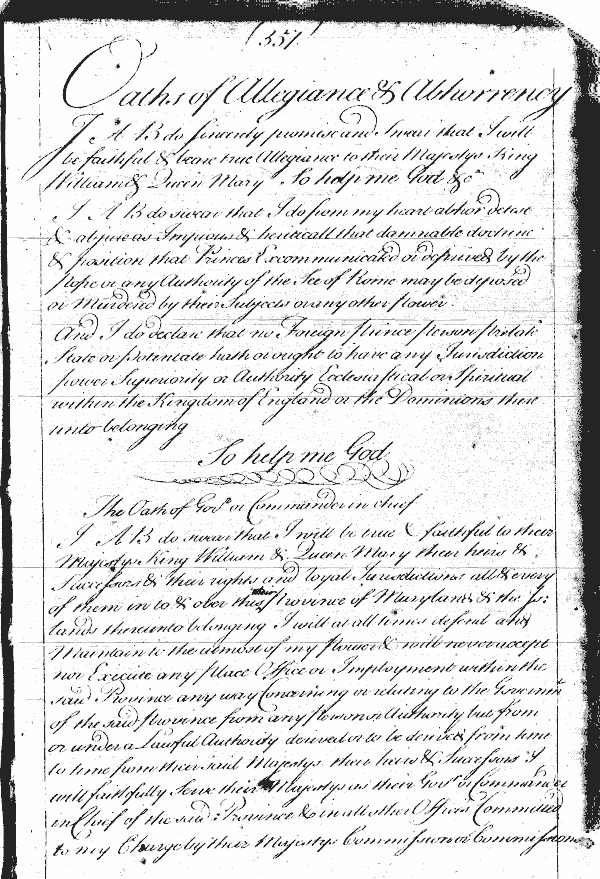 (557)
Oaths of Allegiance & Abhorrency
I A B do sincerely promise and Swear that I will
be faithfull & beare true Allegiance to their Majestys King
William & Queen Mary So help me God &c
I A B do swear that I do from my heart abhor detest
& abjure as Impious & hereticall that damnable doctrine
& position that Princes Excommunicated or deprived by the
Pope or any Authority of the See of Rome may be deposed
or Murdered by their Subjects or any other power
And I do declare that no Foreign prince person prelate
State or potentate hath or ought to have any Jurisdiction
power Superiority or Authority Ecclesiastical or Spiritual
within the Kingdom of England or the Dominions there
unto belonging
So help me God
The Oath of Govr or Commander in chief
I A B do swear that I will be true & faithful to their
Majestys King William & Queen Mary their heirs &
Successors & their rights and royal Jurisdictions all & every
of them in to & over this Province of Maryland & the Is:
lands thereunto belonging I will at all times defend and
Maintain to the utmost of my power & will never accept
nor Execute any place Office or Imployment within the
said Province any way Concerning or relating to the Governmt
of the said province from any person or Authority but from
or under a Lawful Authority derived or to be derived from time
to time from their said Majestys their heirs & Successors I
will faithfully Serve their Majestys as their Govr or Commander
in Chief of the said Province & in all other Offices Committed
to my Charge by their Majestys Commission or Commissions